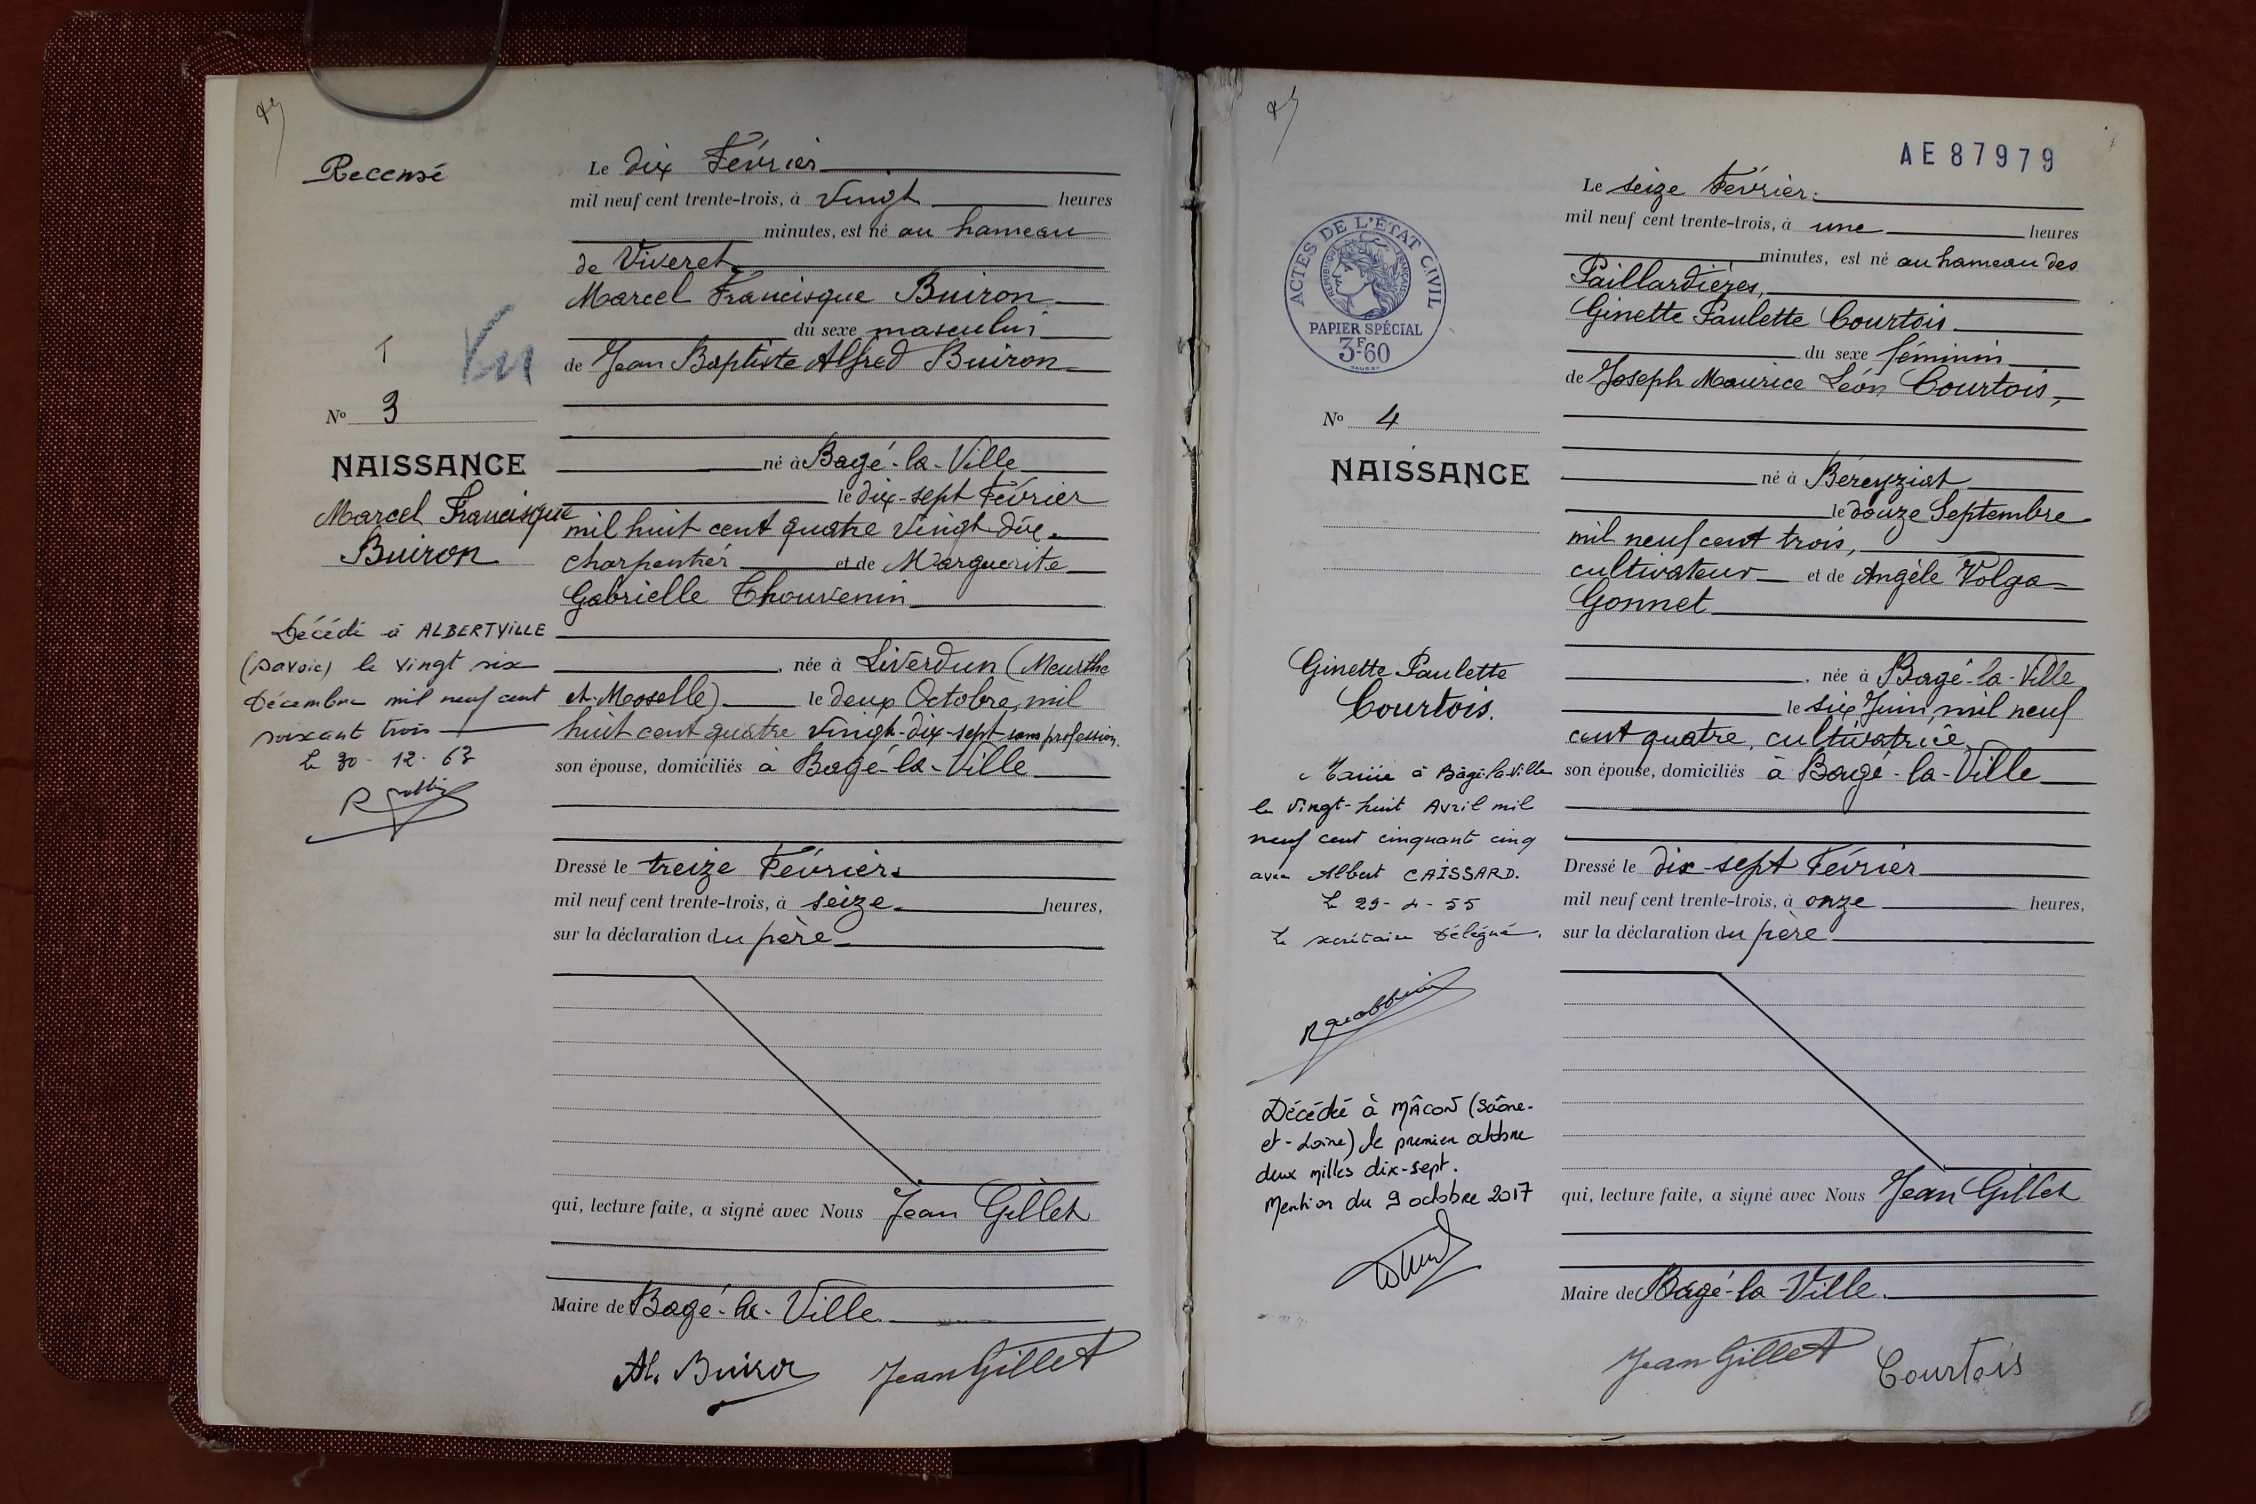 Recensé
Le dix Février
mil neuf cent trente-trois, à vingt heures
minutes, est né au hameau
de Viveret
Marcel Francisque Buiron
du sexe masculin
de Jean Baptiste Alfred Buiron
Vu
No 3
NAISSANCE
Marcel Francisque
Buiron
né à Bagé-la-Ville
le dix-sept Février
mil huit cent quatre vingt-dix
charpentier et de Marguerite
Gabrielle Thouvenin
née à Liverdun (Meurthe
et-Moselle) le deux Octobre, mil
huit cent quatre vingt-dix-sept sans profession.
son épouse, domiciliés à Bagé-la-Ville
Décédé à ALBERTVILLE
(Savoie) le vingt six
Décembre mil neuf cent
soixant trois
Le 30-12-63
Dressé le treize Février
mil neuf cent trente-trois, à seize heures,
sur la déclaration du père
qui, lecture faite, a signé avec Nous Jean Gillet
Maire de Bagé-la-Ville
Al. Buiron JeanGillet
AE87979
Le seize Février
mil neuf cent trente-trois, à une heures
minutes, est né au hameau des
Paillardières,
Ginette Paulette Courtois
du sexe féminin
de Joseph Maurice Léon Courtois,
ACTES DE L'ÉTAT CIVIL
RÉPUBLIQUE FRANÇAISE
PAPIER SPÉCIAL
3F60
No 4
NAISSANCE
Ginette Paulette
Courtois.
né à Béréyziat
le douze Septembre
mil neuf cent trois,
cultivateur et de Angèle Volga
Gonnet
née à Bagé-la-Ville
le six Juin, mil neuf
cent quatre, cultivatrice,
son épouse, domiciliés à Bagé-la-Ville
Mariée à Bâgé-la-Ville
le vingt-huit Avril mil
neuf cent cinquant cinq
avec Albert CAISSARD.
Le 29-4-55
Le secrétaire Délégué.
Décédée à MÂCON (Saône-
et-Loire) le premier octobre
deux milles dix-sept.
Mention du 9 octobre 2017
Dressé le dix-sept Février
mil neuf cent trente-trois, à onze heures,
sur la déclaration du père
qui, lecture faite, a signé avec Nous Jean Gillet
Maire de Bagé-la-Ville.
JeanGillet Courtois